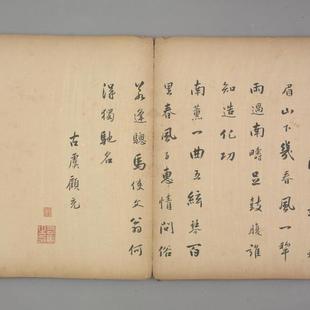 眉山下幾春風一犁
雨過南疇足鼓腹誰
知造化功
南薰一曲五絃琴百
里春風子惠情問俗
若逢驄馬使文翁何
得獨馳名
古虞顧充